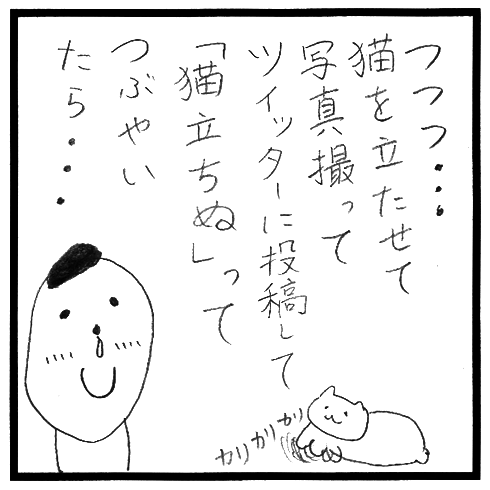 つつつ・・・
猫を立たせて
写真撮って
ツイッターに投稿して
「猫立ちぬ」って
つぶやい
たら・・・
カリカリカリ